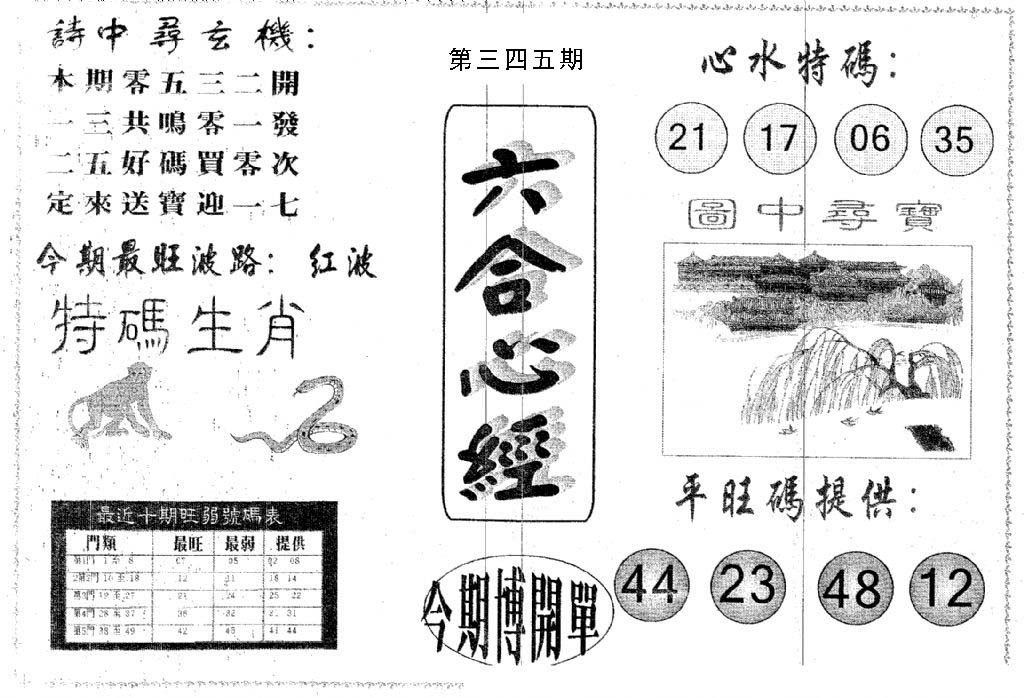 詩中尋玄機：
本期零五三二開
一三共鳴零一發
二五好碼買零次
定來送寶迎一七
今期最旺波路：紅波
特碼生肖
最近十期旺弱號碼表
門類 最旺 最弱 提供
第1門 1 至 8 07 05 02 08
第2門 10 至 18 12 11 18 14
第3門 19 至 27 21 24 25 22
第4門 28 至 37 36 32 31
第5門 38 至 49 42 45 41 44
第三四五期
六合心經
今期博開單
心水特碼：
21 17 06 35
圖中尋寶
平旺碼提供：
44 23 48 12